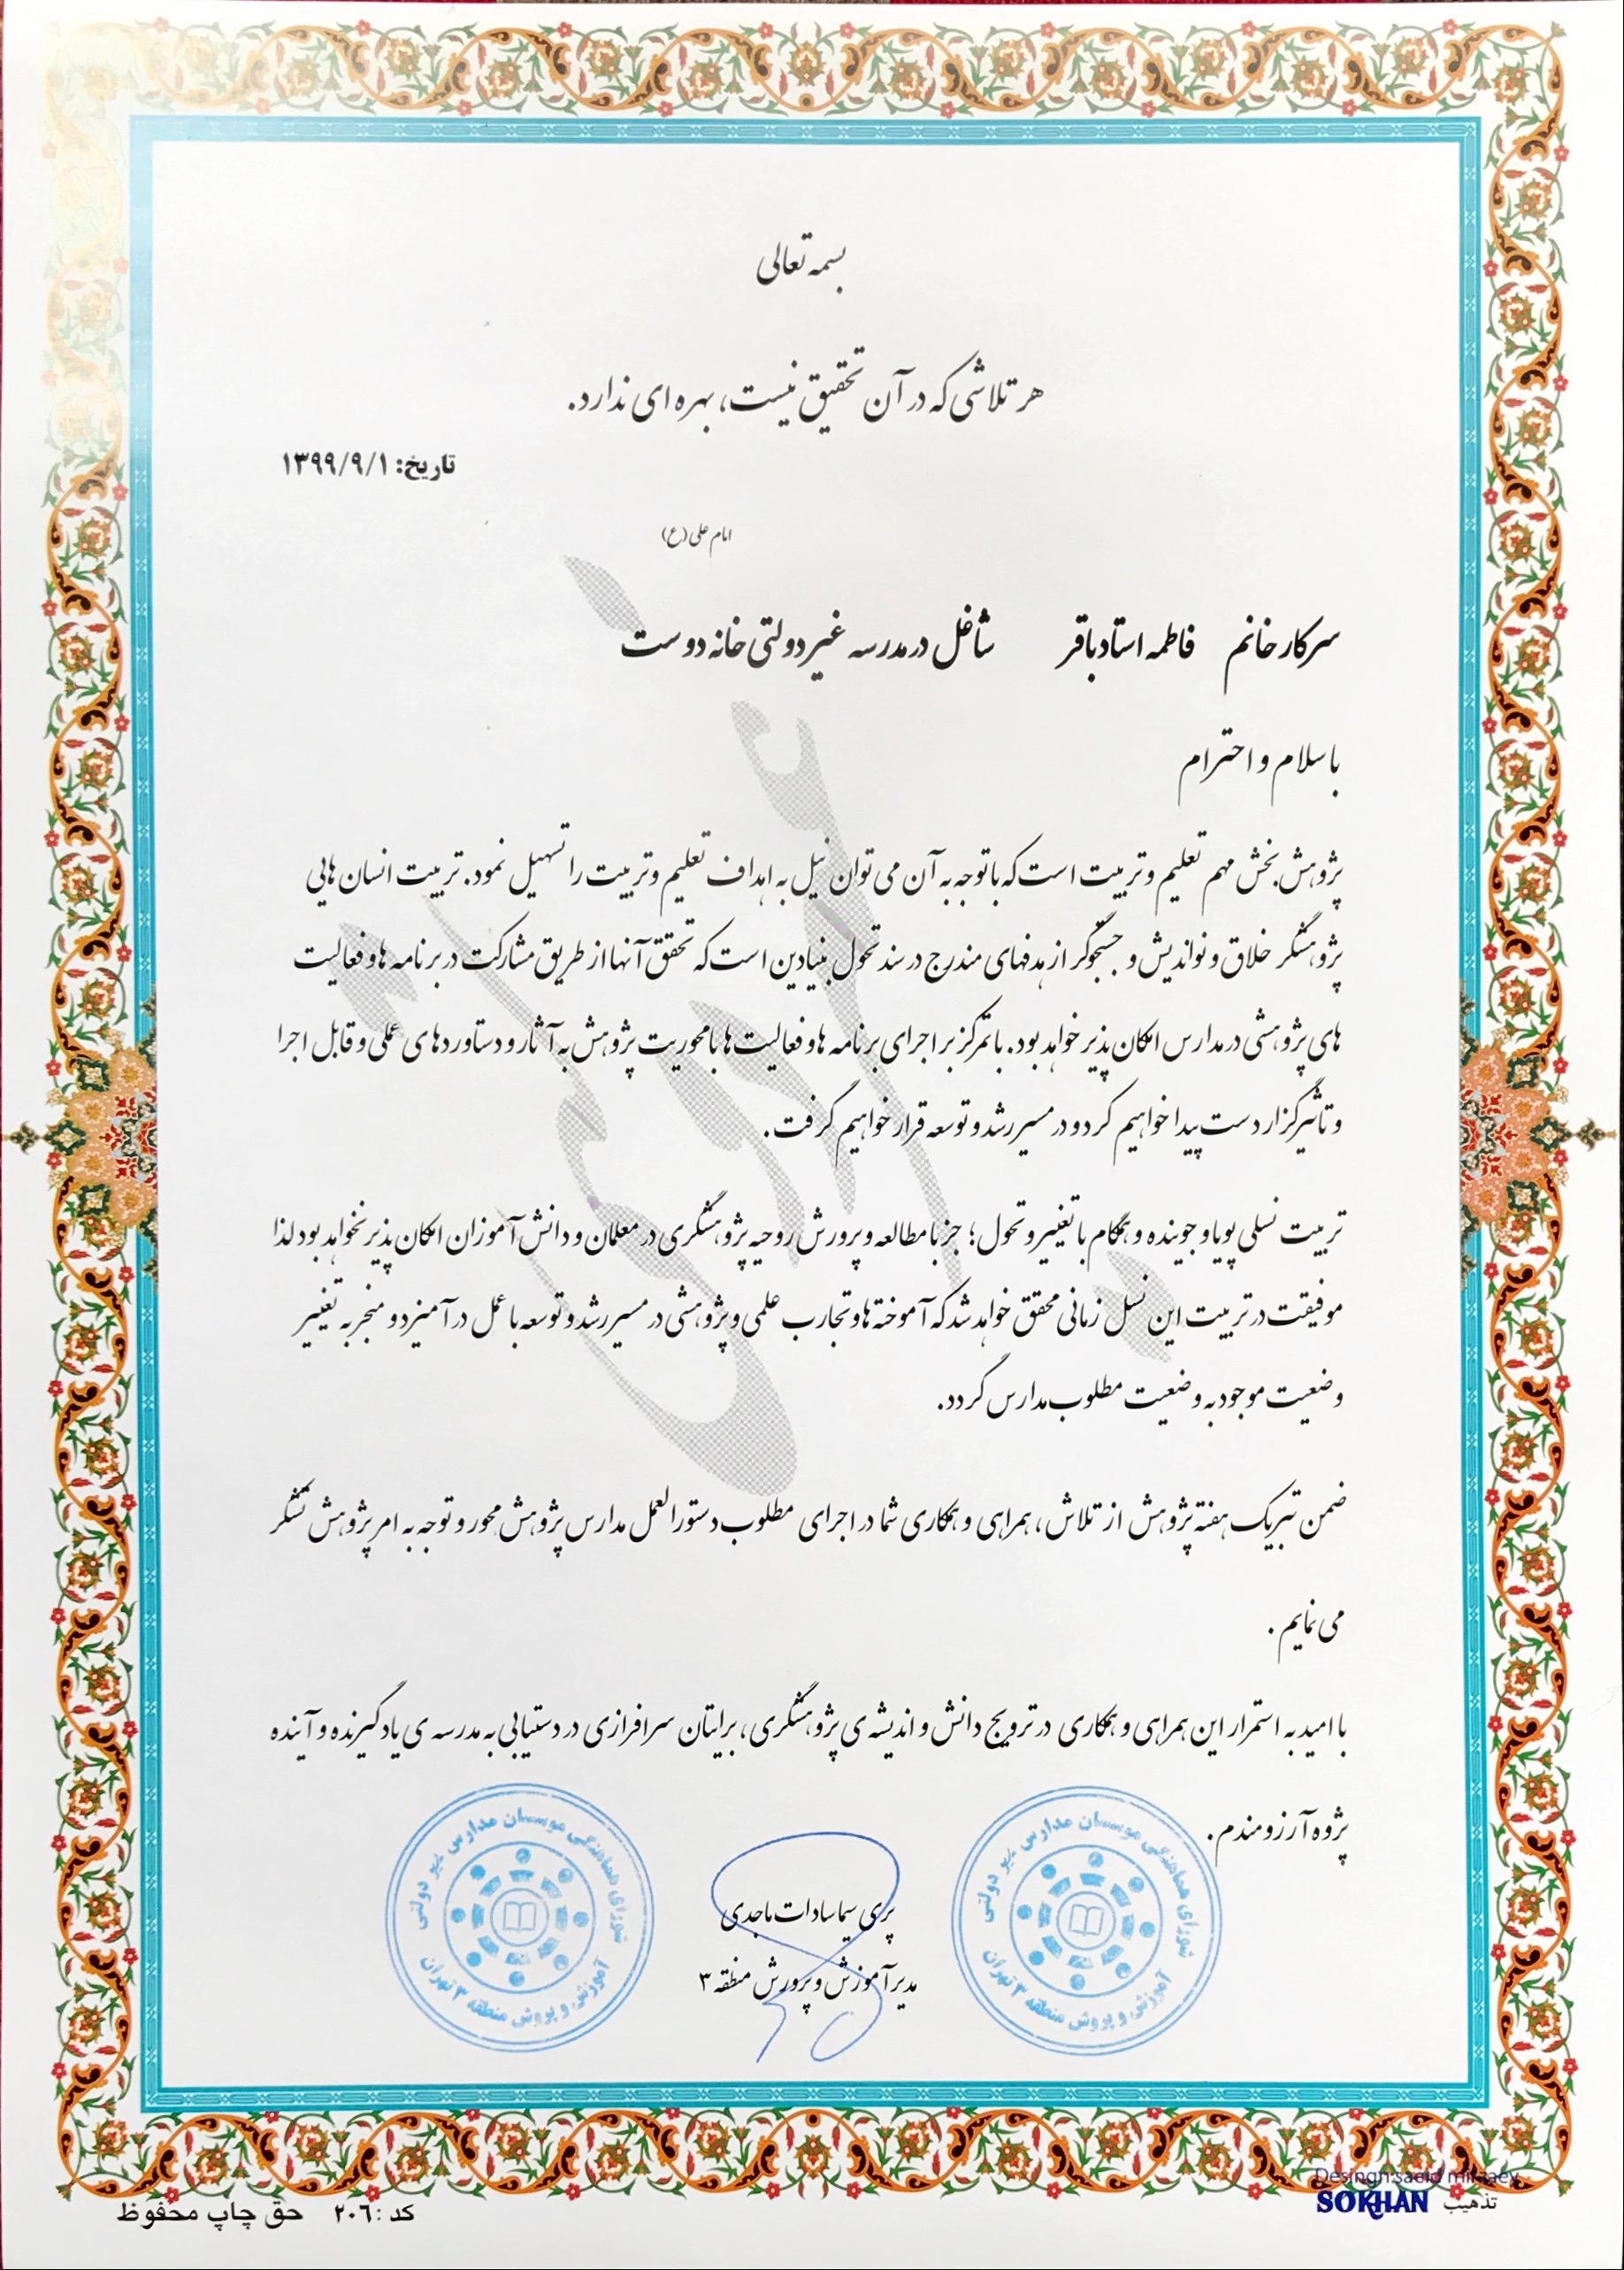 بسمه تعالی
هر تلاشی که در آن تحقیق نیست، بهره ای ندارد.
تاریخ: ۱۳۹۹/۹/۱
امام علی (ع)
سرکار خانم فاطمه استاد باقر شاغل در مدرسه غیر دولتی خانه دوست
با سلام و احترام
پژوهش بخش مهم تعلیم و تربیت است که با توجه به آن می توان نیل به اهداف تعلیم و تربیت را تسهیل نمود. تربیت انسان هایی
پژوهشگر خلاق و نواندیش و جستجوگر از هدفهای مندرج در سند تحول بنیادین است که تحقق آنها از طریق مشارکت در برنامه ها و فعالیت
های پژوهشی در مدارس امکان پذیر خواهد بود. با تمرکز بر اجرای برنامه ها و فعالیت ها با محوریت پژوهش به آثار و دستاوردهای عملی و قابل اجرا
و تاثیرگزار دست پیدا خواهیم کرد و در مسیر رشد و توسعه قرار خواهیم گرفت.
تربیت نسلی پویا و جوینده و همگام با تغییر و تحول؛ جز با مطالعه و پرورش روحیه پژوهشگری در معلمان و دانش آموزان امکان پذیر نخواهد بود لذا
موفیقت در تربیت این نسل زمانی محقق خواهد شد که آموخته ها و تجارب علمی و پژوهشی در مسیر رشد و توسعه با عمل در آمیزد و منجر به تغییر
وضعیت موجود به وضعیت مطلوب مدارس گردد.
ضمن تبریک هفته پژوهش از تلاش، همراهی و همکاری شما در اجرای مطلوب دستورالعمل مدارس پژوهش محور و توجه به امر پژوهش تشکر
می نمایم.
با امید به استمرار این همراهی و همکاری در ترویج دانش و اندیشه ی پژوهشگری، برایتان سرافرازی در دستیابی به مدرسه ی یادگیرنده و آینده
پژوه آرزومندم.
شورای هماهنگی موسسان مدارس غیر دولتی
آموزش و پروش منطقه ۳ تهران
پری سیما سادات ماجدی
مدیر آموزش و پرورش منطقه ۳
شورای هماهنگی موسسان مدارس غیر دولتی
آموزش و پروش منطقه ۳ تهران
Desingn:saeid mirzaey
تذهیب SOKHAN
کد : ۲۰۶ حق چاپ محفوظ